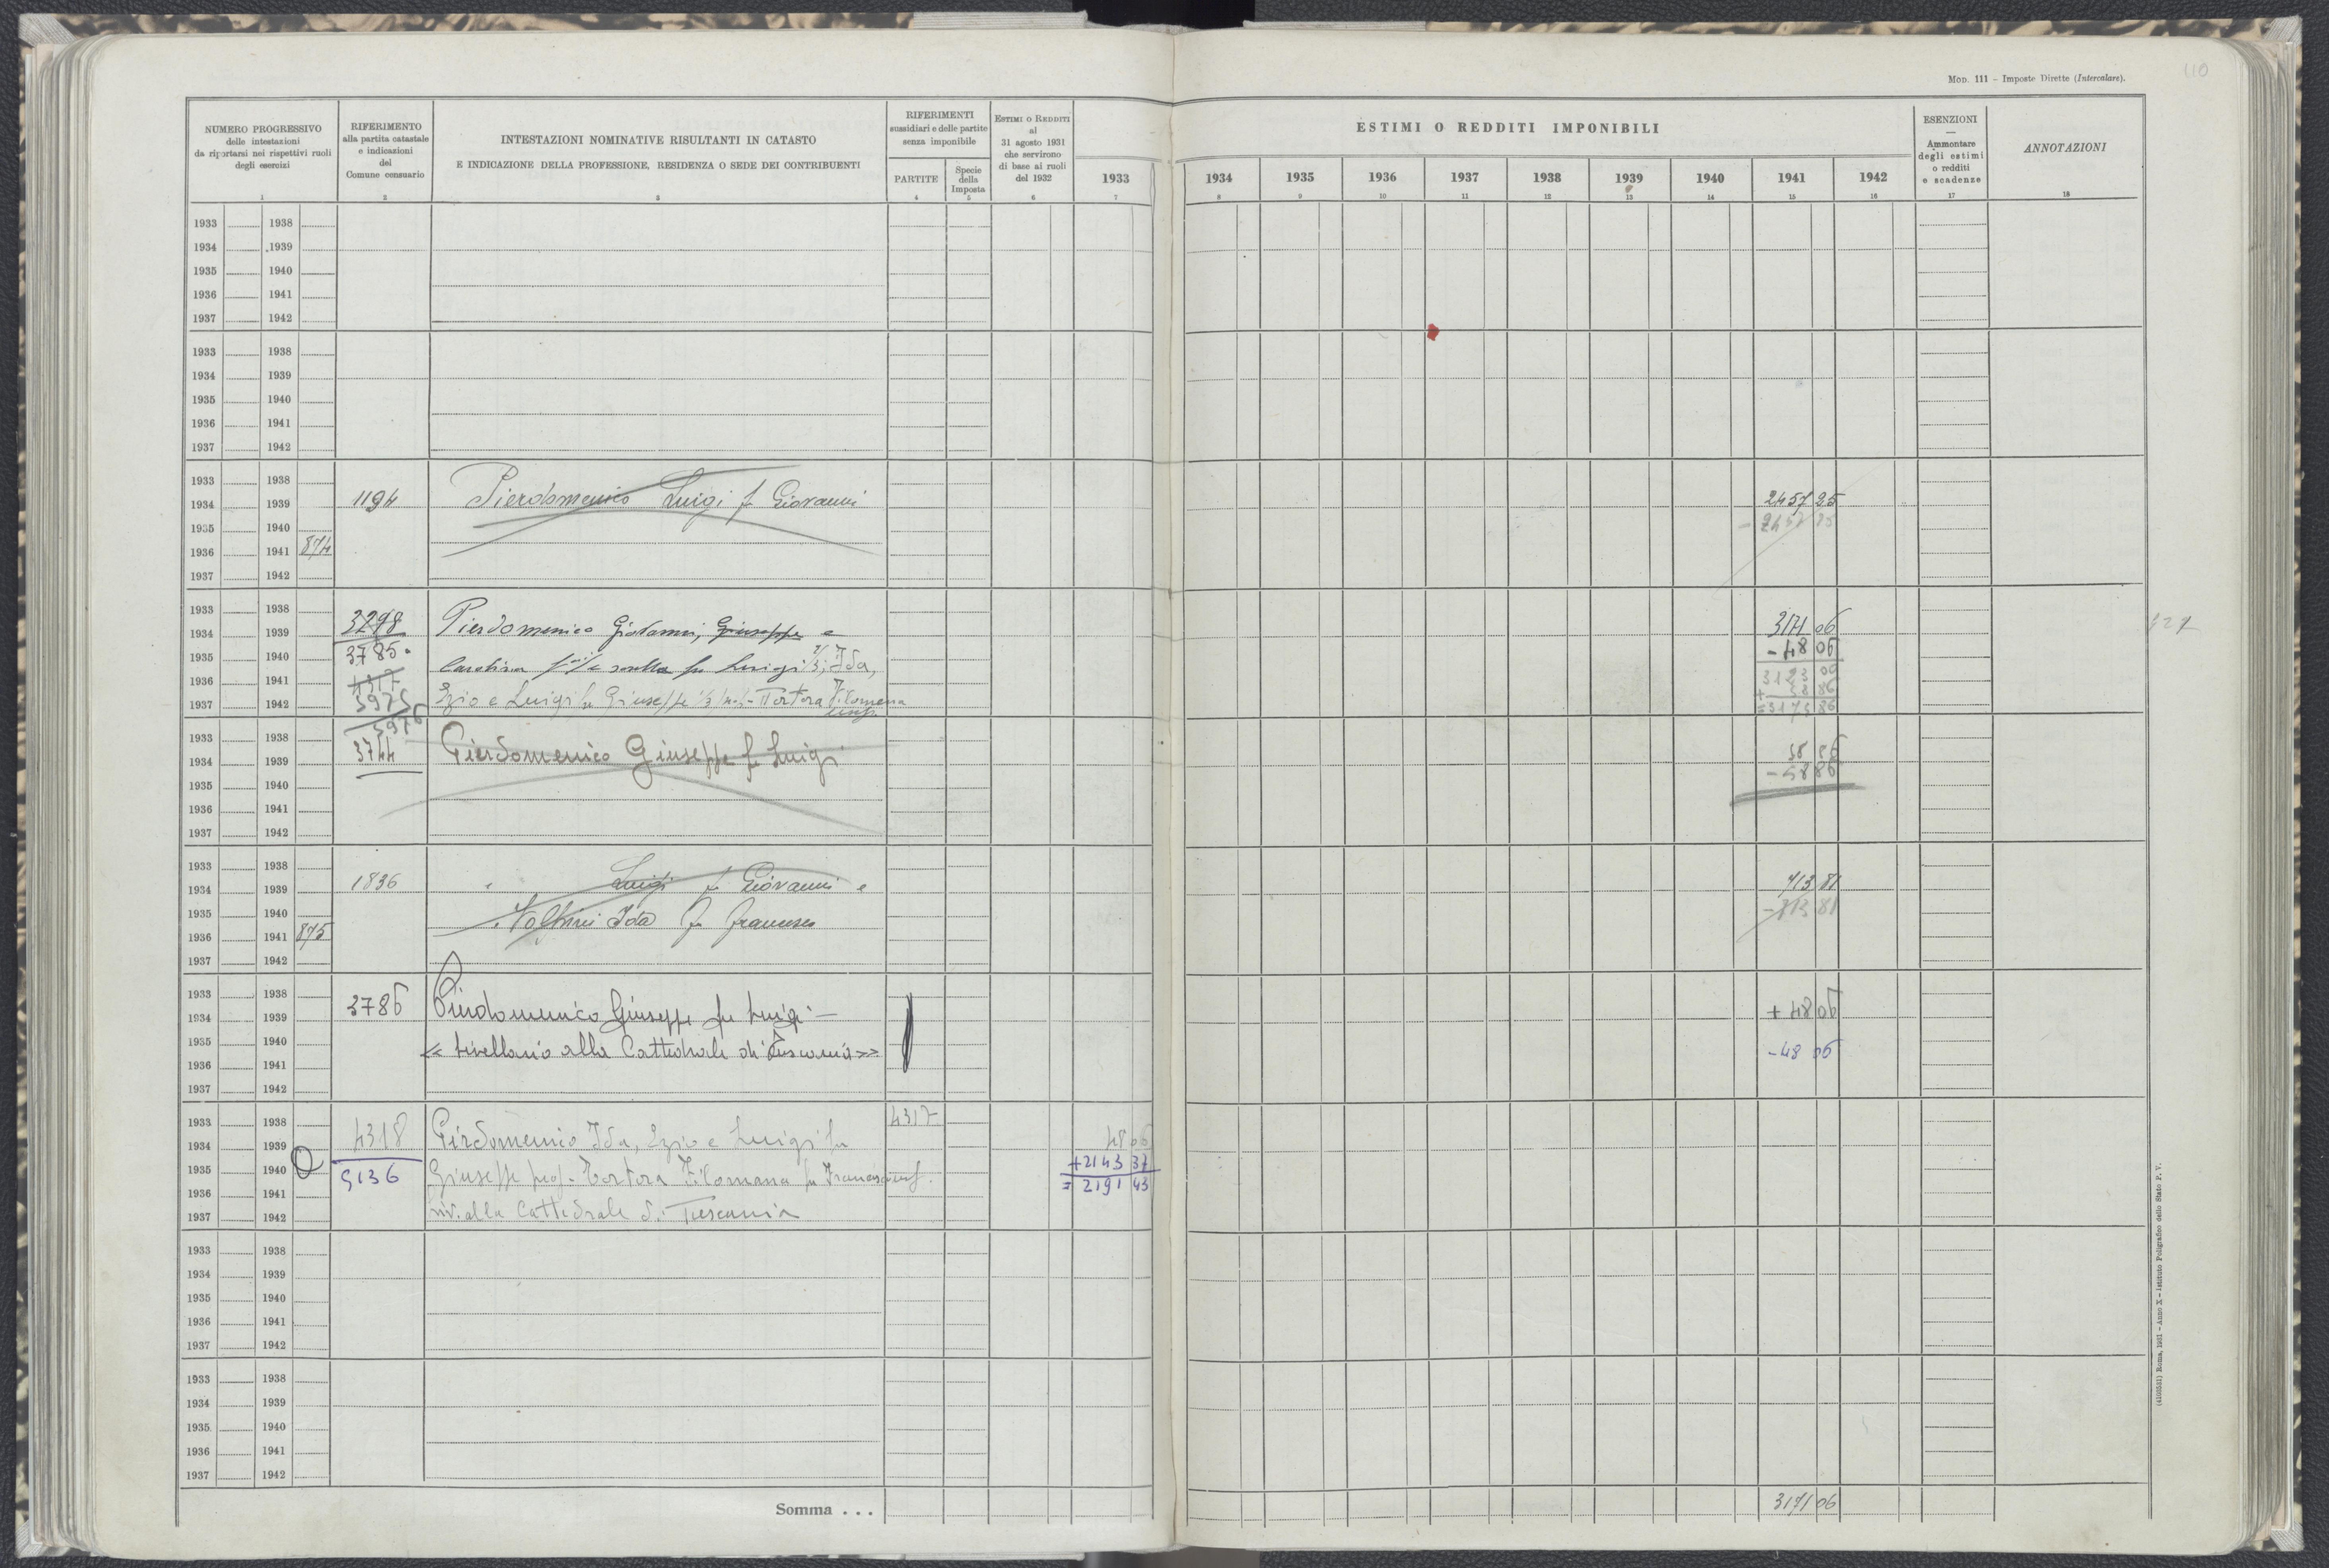 110
Mod. 111 – Imposte Dirette (Intercalare).
NUMERO PROGRESSIVO
delle intestazioni
da riportarsi nei rispettivi ruoli
degli esercizi
1
RIFERIMENTO
alla partita catastale
e indicazioni
del
Comune censuario
2
INTESTAZIONI NOMINATIVE RISULTANTI IN CATASTO
E INDICAZIONE DELLA PROFESSIONE, RESIDENZA O SEDE DEI CONTRIBUENTI
3
RIFERIMENTI
sussidiari e delle partite
senza imponibile
PARTITE
4
Specie
della
Imposta
5
ESTIMI O REDDITI
al
31 agosto 1931
che servirono
di base ai ruoli
del 1932
6
1933
7
ESTIMI O REDDITI IMPONIBILI
1934 1935 1936 1937 1938 1939 1940 1941 1942
8 9 10 11 12 13 14 15 16
ESENZIONI
—
Ammontare
degli estimi
o redditi
e scadenze
17
ANNOTAZIONI
18
1933 1938
1934 1939
1935 1940
1936 1941
1937 1942
1933 1938
1934 1939
1935 1940
1936 1941
1937 1942
1933 1938
1934 1939 1194 Pierdomenico Luigi fu Giovanni 2457 25
1935 1940
1936 1941 874
1937 1942
1933 1938 3298 Pierdomenico Giovanni, Giuseppe e 3171 06
1934 1939
1935 1940 3785 Carolina fu Luigi 2/3, Ida, - 48 06
1936 1941 4317 3123 00
1937 1942 5975 Ezio e Luigi fu Giuseppe 1/3 Tortora Filomena
5976
1933 1938
1934 1939 3744 Pierdomenico Giuseppe fu Luigi 58 86
1935 1940 - 58 86
1936 1941
1937 1942
1933 1938
1934 1939 1836 " Luigi fu Giovanni e 713 81
1935 1940 Ida fu Francesco - 713 81
1936 1941 875
1937 1942
1933 1938
1934 1939 3786 Pierdomenico Giuseppe fu Luigi – + 48 06
1935 1940 « livellario alla Cattedrale di Tuscania » - 48 06
1936 1941
1937 1942
1933 1938 4317
1934 1939 4318 Pierdomenico Ida, Ezio e Luigi fu 48 06
1935 1940 5136 Giuseppe prop. Tortora Filomena fu Francesco usuf. + 2143 37
1936 1941 = 2191 43
1937 1942 liv. alla Cattedrale di Tuscania
1933 1938
1934 1939
1935 1940
1936 1941
1937 1942
1933 1938
1934 1939
1935 1940
1936 1941
1937 1942
Somma . . . 3171 06
(4103231) Roma, 1931 – Anno X – Istituto Poligrafico dello Stato P. V.